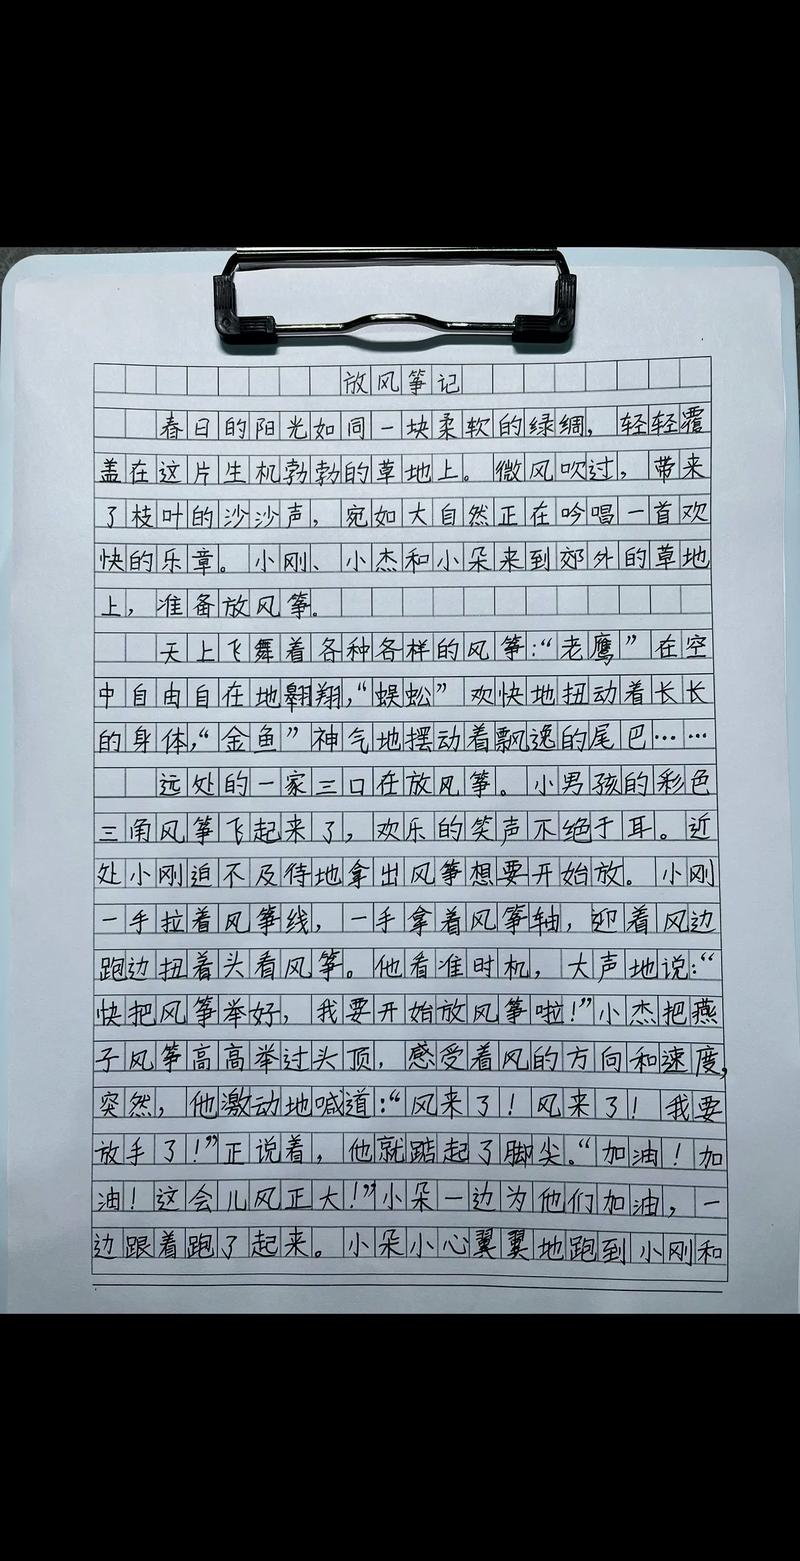 放风筝记
春日的阳光如同一块柔软的绿绸，轻轻覆
盖在这片生机勃勃的草地上。微风吹过，带来
了枝叶的沙沙声，宛如大自然正在吟唱一首欢
快的乐章。小刚、小杰和小朵来到郊外的草地
上，准备放风筝。
天上飞舞着各种各样的风筝：“老鹰”在空
中自由自在地翱翔，“蜈蚣”欢快地扭动着长长
的身体，“金鱼”神气地摆动着飘逸的尾巴……
远处的一家三口在放风筝。小男孩的彩色
三角风筝飞起来了，欢乐的笑声不绝于耳。近
处小刚迫不及待地拿出风筝想要开始放。小刚
一手拉着风筝线，一手拿着风筝轴，迎着风边
跑边扭着头看风筝。他看准时机，大声地说：“
快把风筝举好，我要开始放风筝啦！”小杰把燕
子风筝高高举过头顶，感受着风的方向和速度，
突然，他激动地喊道：“风来了！风来了！我要
放手了！”正说着，他就踮起了脚尖。“加油！加
油！这会儿风正大！”小朵一边为他们加油，一
边跟着跑了起来。小朵小心翼翼地跑到小刚和